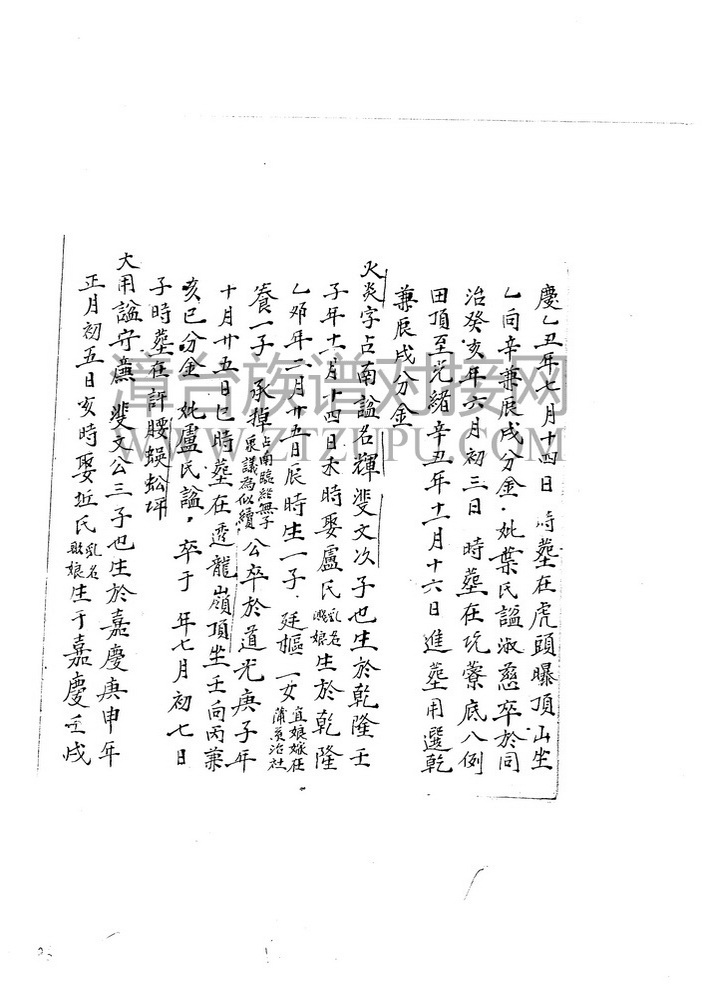 慶乙丑年七月十四日 時塟在虎頭曝頂山坐
乙向辛兼辰戌分金·妣葉氏諡淑慈卒於同
治癸亥年六月初三日 時塟在坑藔底八例
田頂至光緒辛丑年十二月十六日進塟用選乾
兼辰戌分金
火炎字占南諡名輝斐文次子也生於乾隆壬
子年十一月十四日未時娶盧氏乳名娘生於乾隆
乙卯年二月廿五日辰時生一子·廷樞一女宜娘嫁在蒲員治社
養一子 承掉占南臨終無子衆議為似續公卒於道光庚子年
十月廿五日巳時塟在透龍嶺頂坐壬向丙兼
亥巳分金 妣盧氏諡, 卒于 年七月初七日
子時塟在許腰蜈蚣坪
大用諡守廉 斐文公三子也生於嘉慶庚申年
正月初五日亥時娶氏乳名娘生于嘉慶壬戌
漳台族谱对接网
WWW.ZTZUPU.COM